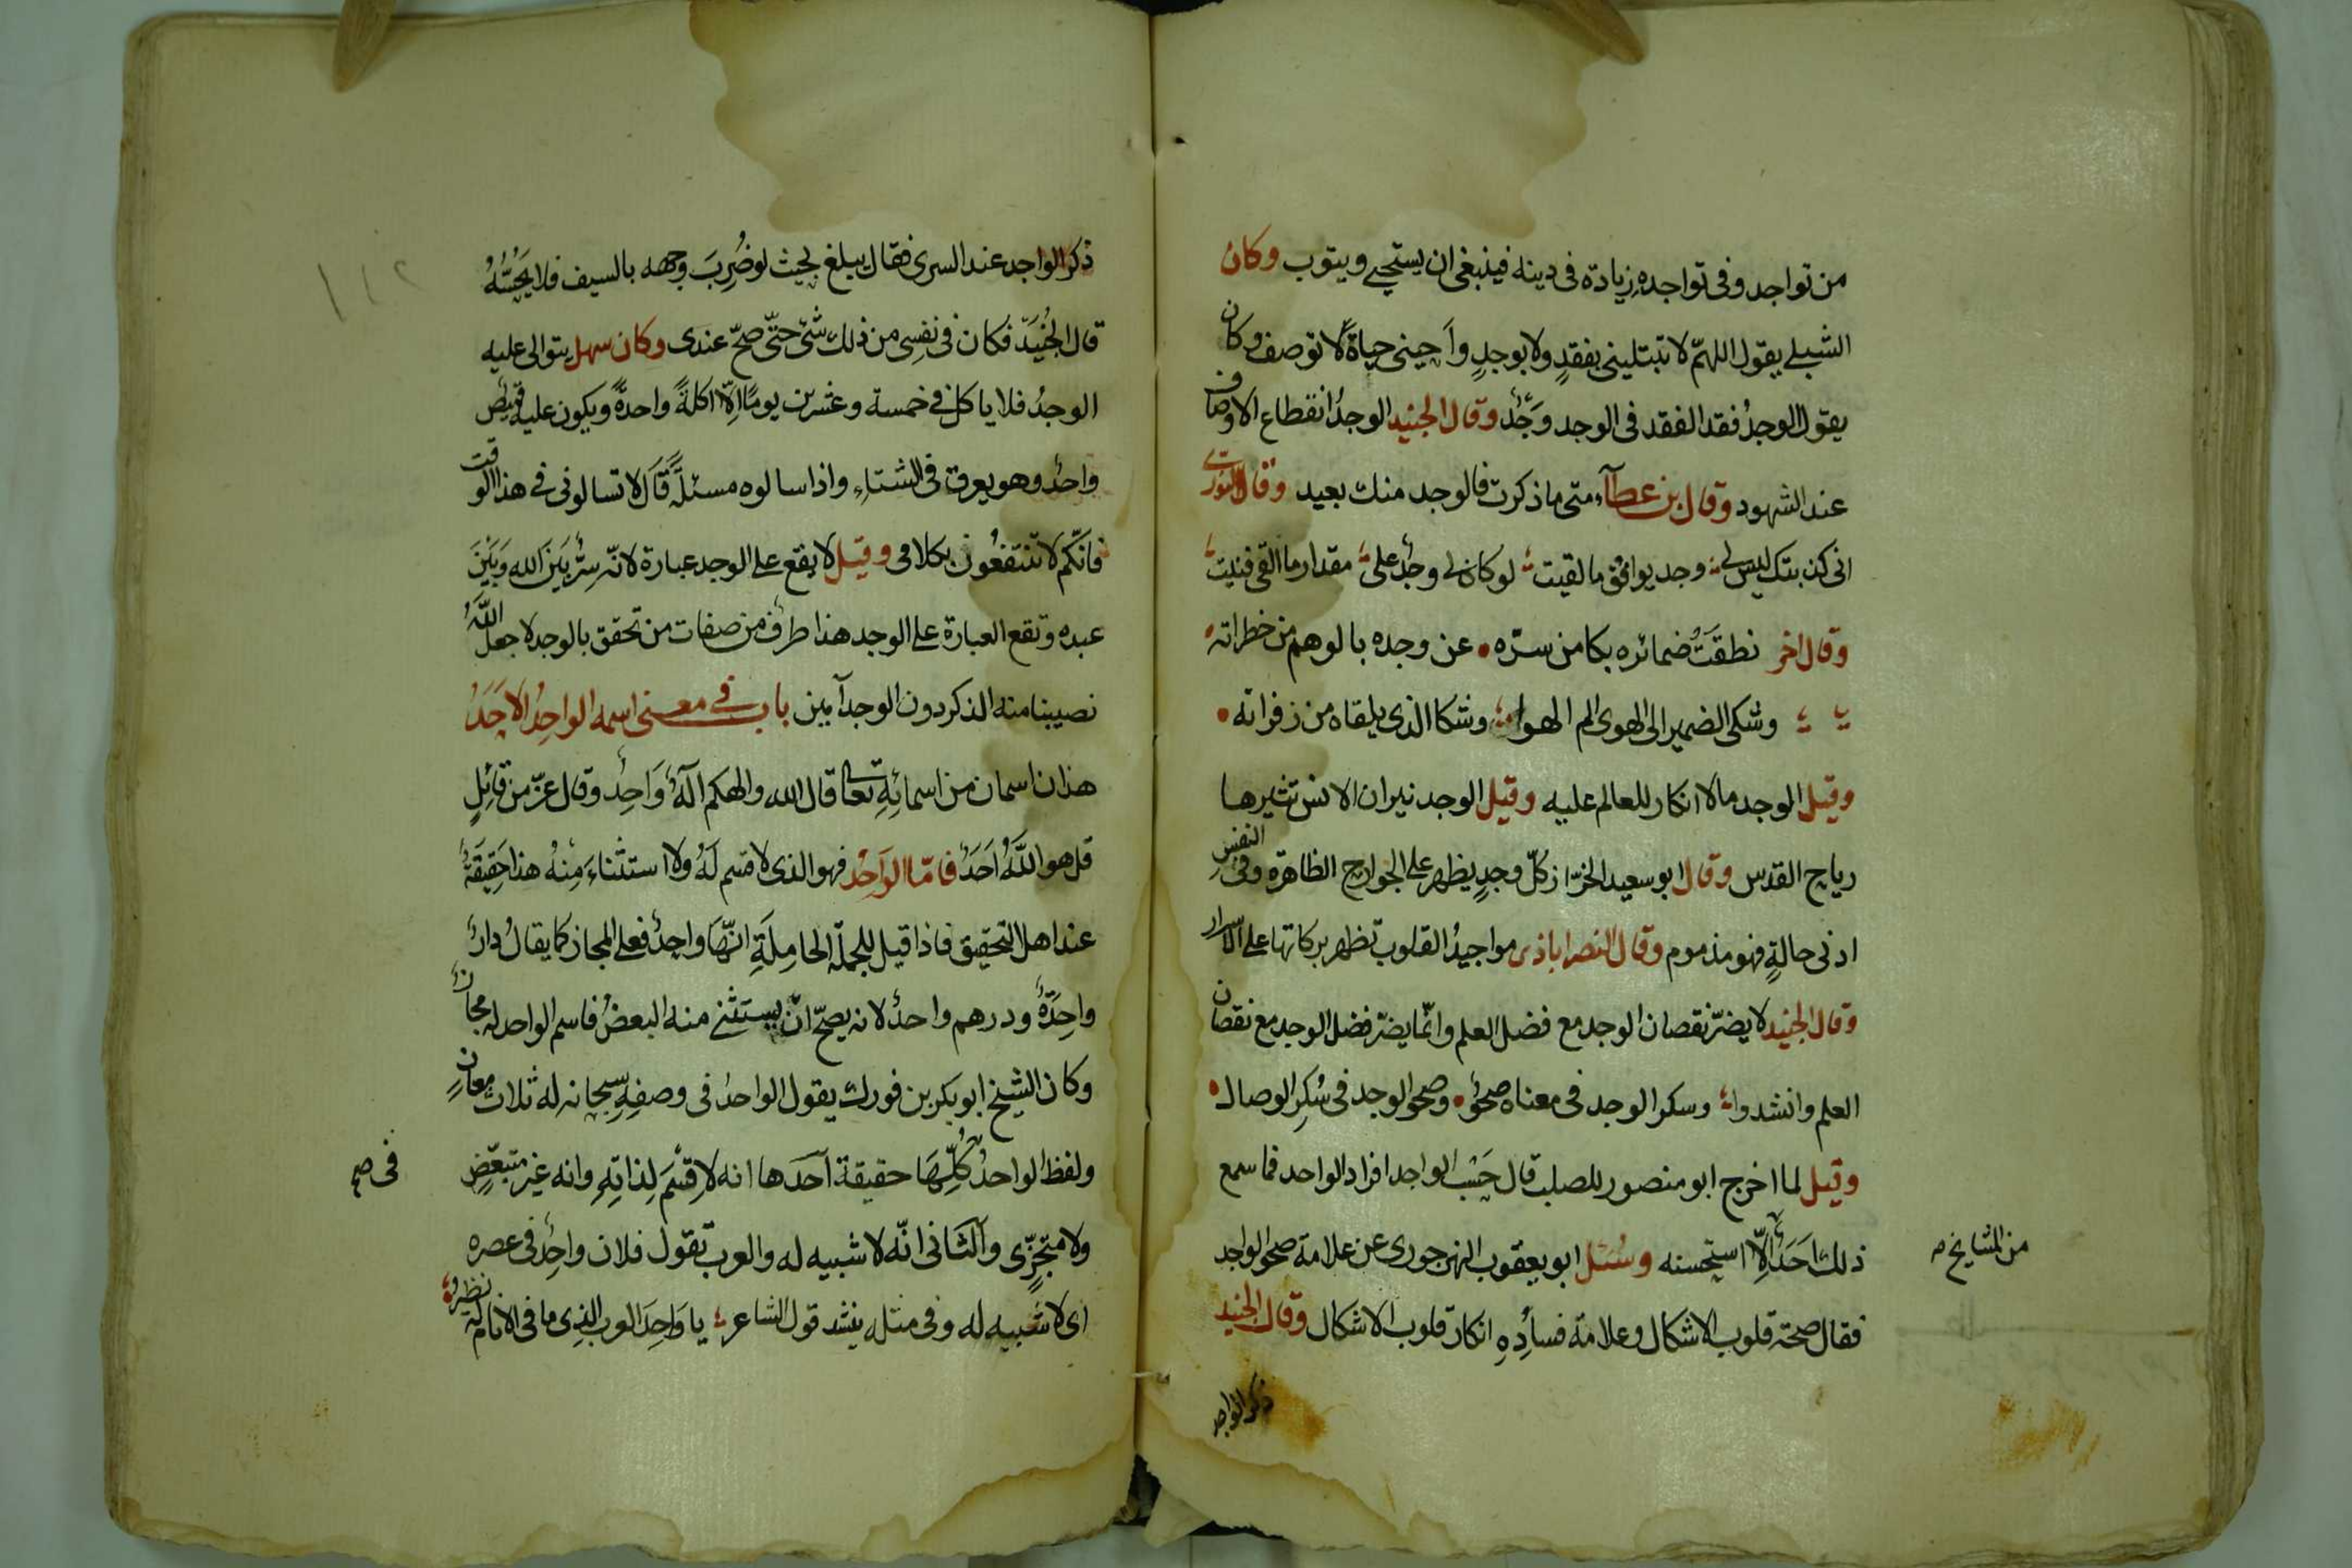 من تواجد وفى تواجده زيادة فى دينه فينبغى ان يستحيى ويتوب وكان
الشبلى يقول اللهمّ لا تبتلينى بفقدٍ ولا بوجدٍ وأحينى حياةً لا توصف وكان
يقول الوجدُ فقد الفقد فى الوجد وَجْدٌ وقال الجنيد الوجدُ انقطاع الاوصاف
عند الشهود وقال بن عطآء متى ما ذكرت فالوجد منك بعيد وقال النورى
ليس لى وجد يوافق ما لقيت لو كان لى وجدٌ على مقدار ما القى فنيت
وقال اخر نطقَتْ ضمائره بكامن سرّه عن وجده بالوهم من خطراته
وشكى الضمير الى الهوى الم الهوا وشكا الذى يلقاه من زفراته
وقيل الوجد مالا انكار للعالم عليه وقيل الوجد نيران الانس تثيرها
رياح القدس وقال ابو سعيد الخرّاز كلّ وجدٍ يظهر على الجوارح الظاهرة وفى النفس
ادنى حالةٍ فهو مذموم وقال النصراباذى مواجيدُ القلوب تظهر بركاتها على الاسرار
وقال الجنيد لا يضرّ نقصان الوجد مع فضل العلم وانّما يضرّ فضل الوجد مع نقصان
العلم وانشدوا وسكر الوجد فى معناه صحوٌ وصحو الوجد فى سُكرِ الوصال
وقيل لما اخرج ابو منصور للصلب قال حَسْب الواجد افراد الواحد فما سمع
ذلك احَدٌ الّا استحسنه وسُئل ابو يعقوب النهرجورى عن علامة صحو الواجد
من المشايخ
فقال صحة قلوب الاشكال وعلامة فساده انكار قلوب الاشكال وقال الجنيد
ذكر الواجد
١١٢
ذكر الواجد عند السرى فقال يبلغ بحيث لو ضُرِبَ وجهه بالسيف فلا يحُسُّهُ
قال الجُنَيد فكان فى نفسِى من ذلك شئ حتّى صحّ عندى وكان سهل يتوالى عليه
الوجدُ فلا ياكل فى خمسة وعشرين يومًا اِلّا اكلةً واحدةً ويكون عليه قميص
واحدٌ وهو يعرق فى الشتاءِ واذا سالوه مسئلةً قال لا تسالونى فى هذا الوقت
فانّكم لا تنتفعُون بكلامى وقيل لا يقع على الوجد عبارة لانّه سِرٌّ بَينَ الله وَبَيْنَ
عبده وتقع العبارة على الوجد هذا طرف من صفات من تحقق بالوجد لا جعل اللّهُ
نصيبنا منه الذكر دون الوجد آمين باب فى معنى اسمه الواحِدُ الاحَدُ
هذان اسمان من اسمائِهِ تعالى قال الله والهكم الهٌ وَاحِد وقال عزّ من قائِلٍ
قل هو اللَّهُ احَدٌ فامّا الوَاحِدُ فهو الذى لا قسم لَهُ ولا استثناءَ مِنْهُ هذا حَقِيقَةٌ
عند اهل التحقيق فاذا قيل للجملة الحامِلَةِ انّهَا واحِدٌ فعلى المجاز كما يقالُ دارٌ
واحِدَةٌ ودرهم واحدٌ لانه يصحّ انْ يستثنى منه البعضُ فاسم الواحد له مجازٌ
وكان الشيخ ابو بكر بن فورك يقول الواحدُ فى وصفِهِ سبحانه له ثلاث معانٍ
ولفظ الواحدُ كُلِّهَا حقيقة آحَدها انه لا قسْمَ لِذاتِهِ وانه غير متبعّضٍ
فى صح
ولا متجزّى وآلثّانى انّه لا شبيه له والعرب تقول فلان واحِدٌ فى عصره
اى لا شبيه له وفى مثله ينشد قول الشاعر يا وَاحِدَ العرب الذِى ما فى الانام له نظير